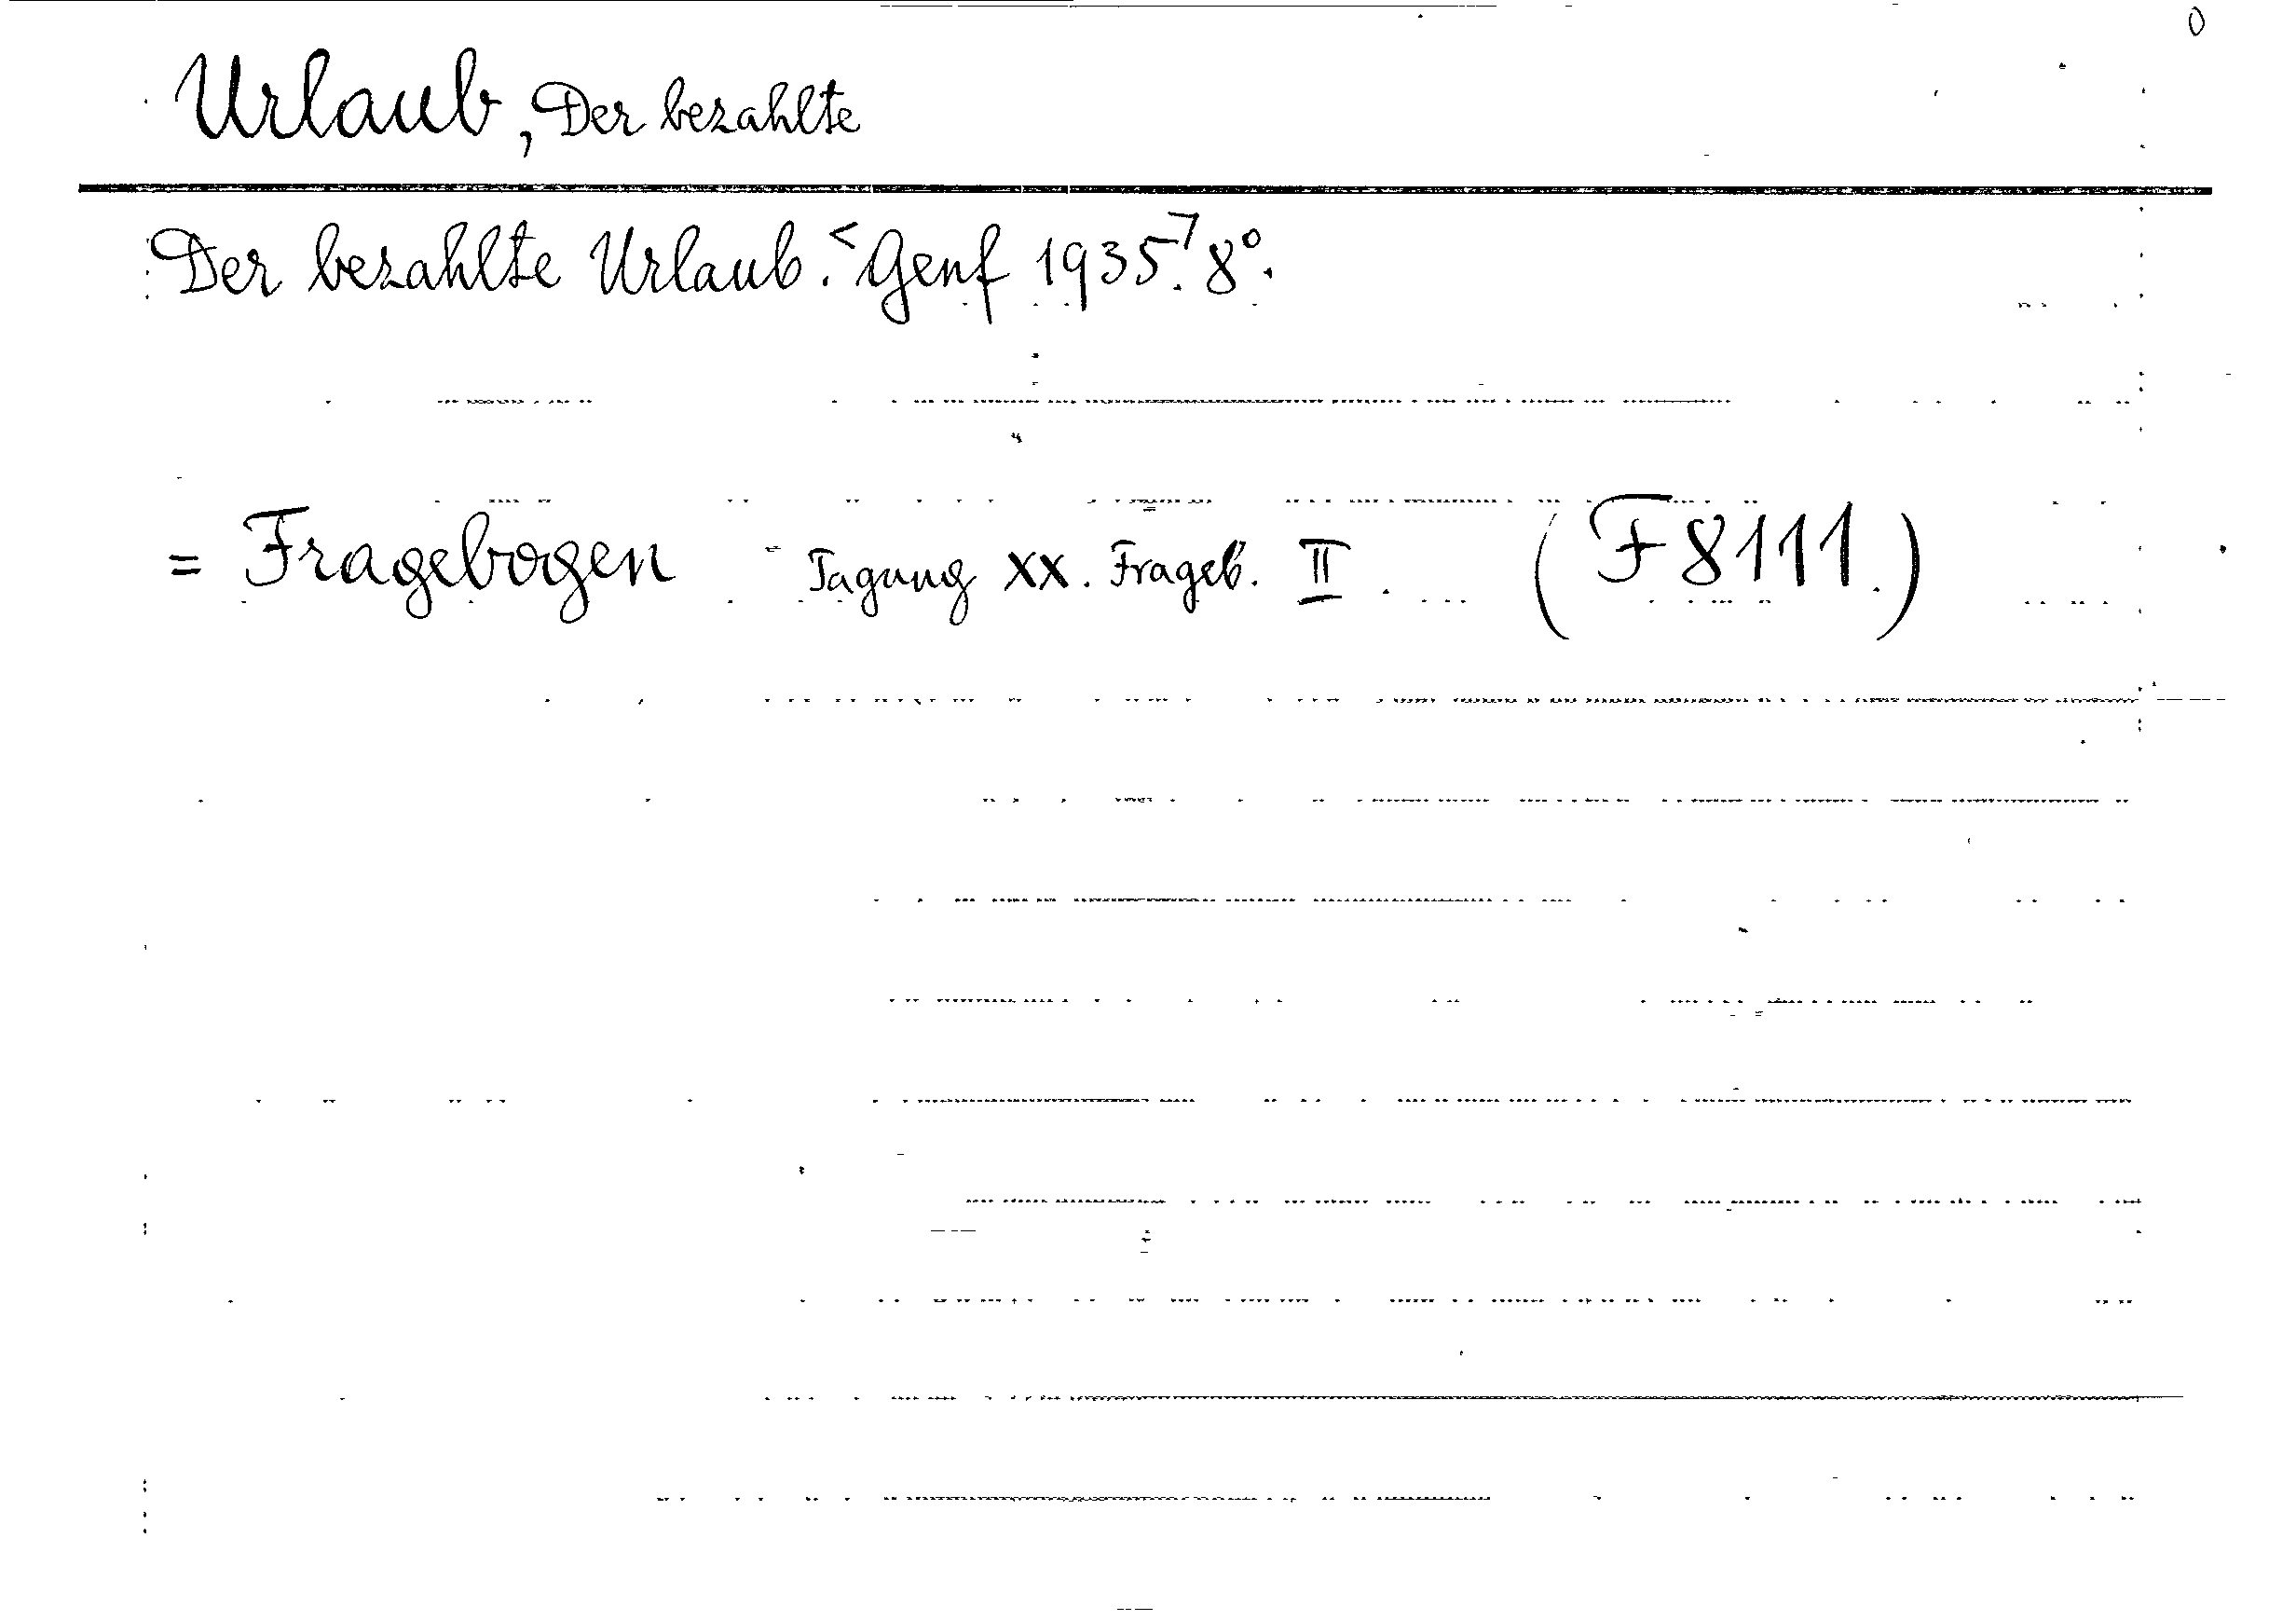 0
Urlaub, Der bezahlte
Der bezahlte Urlaub. <Genf 1935.> 8°.
= Fragebogen - Tagung XX. Frageb. II. (F 8111.)